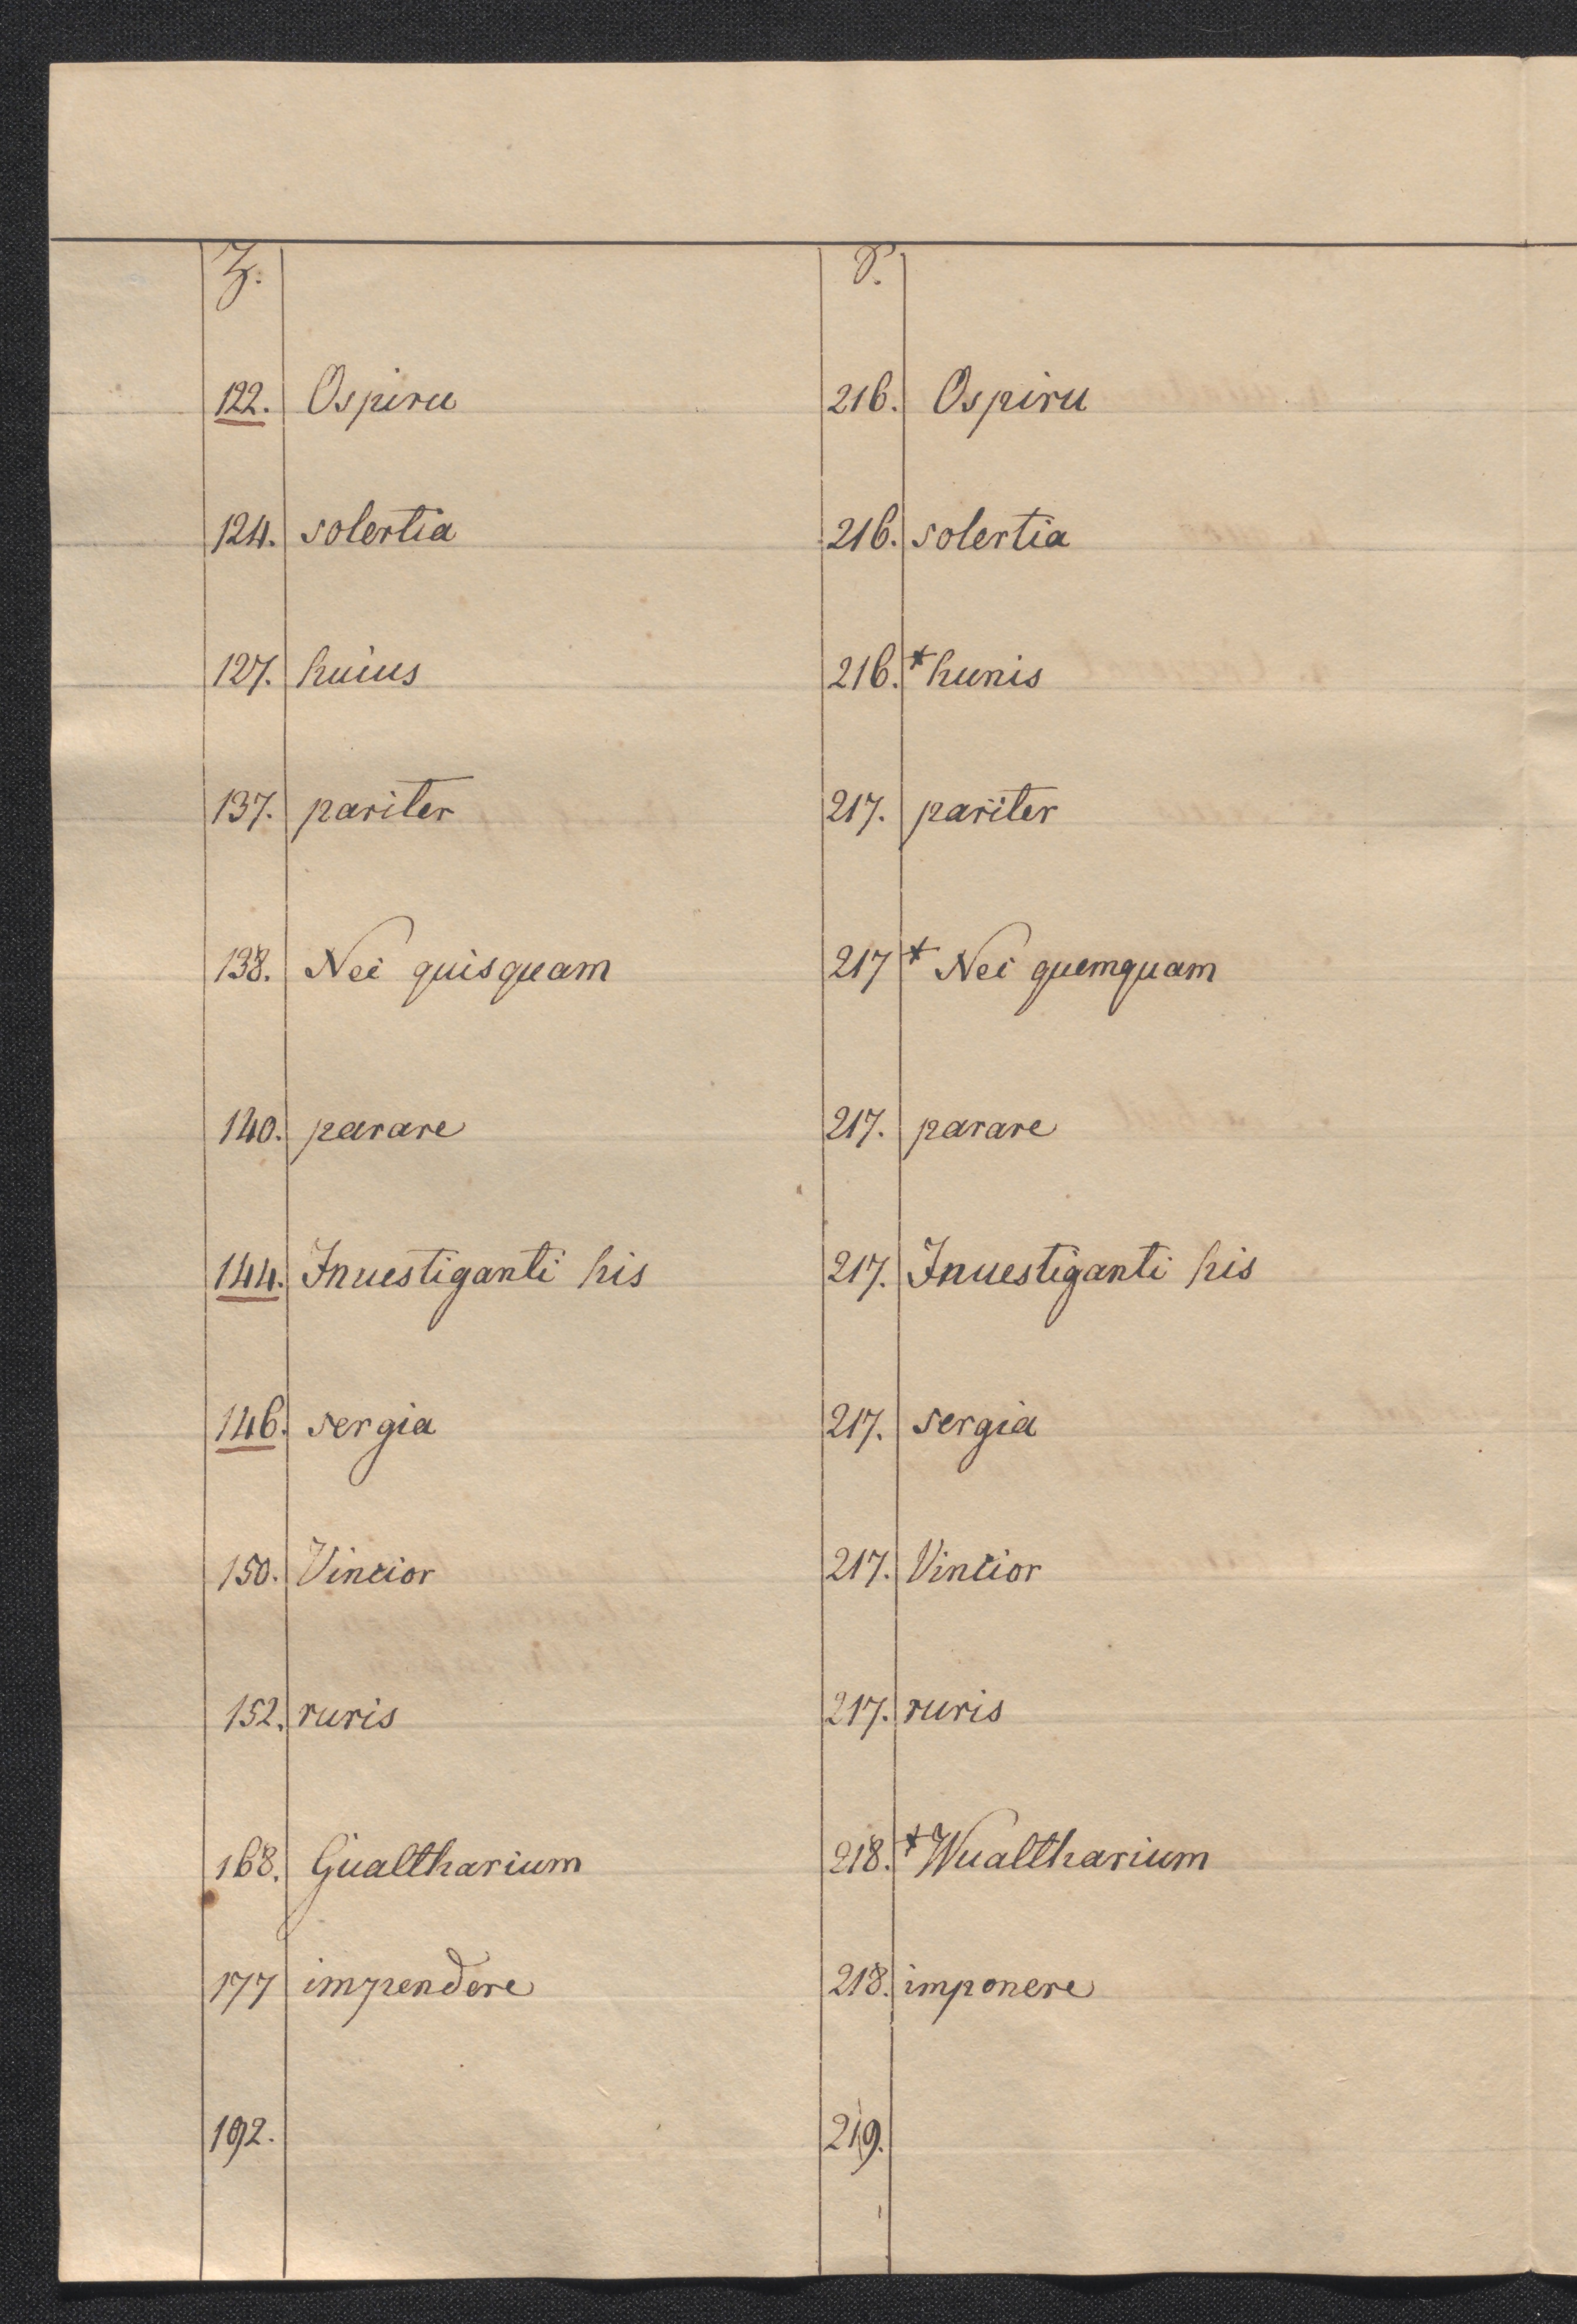 Z. S.
122. Ospiru 216. Ospiru
124. solertia 216. solertia
127. huius 216. *hunis
137. pariter 217. pariter
138. Nei quisquam 217 * Nei quemquam
140. parare 217. parare
144. Inuestiganti his 217. Inuestiganti his
146. sergia 217. sergia
150. Vincior 217. Vincior
152. ruris 217. ruris
168. Gualtharium 218. *Wualtharium
177 impendere 218. imponere
192. 219.